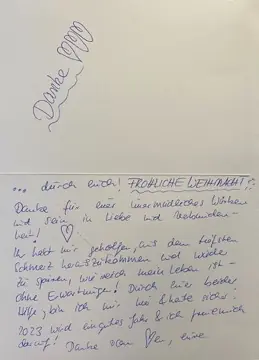 Danke ♡♡♡
... durch euch! FRÖHLICHE WEIHNACHT!
Danke für euer unermüdliches Wirken
und sein in Liebe und Verbunden-
heit! ♡
Ihr habt mir geholfen, aus dem tiefsten
Schmerz herauszukommen und wieder
zu spüren, wie reich mein Leben ist -
ohne Erwartungen! Durch eure beider
Hilfe, bin ich mir sicher:
2023 wird ein gutes Jahr & ich freue mich
darauf! Danke von